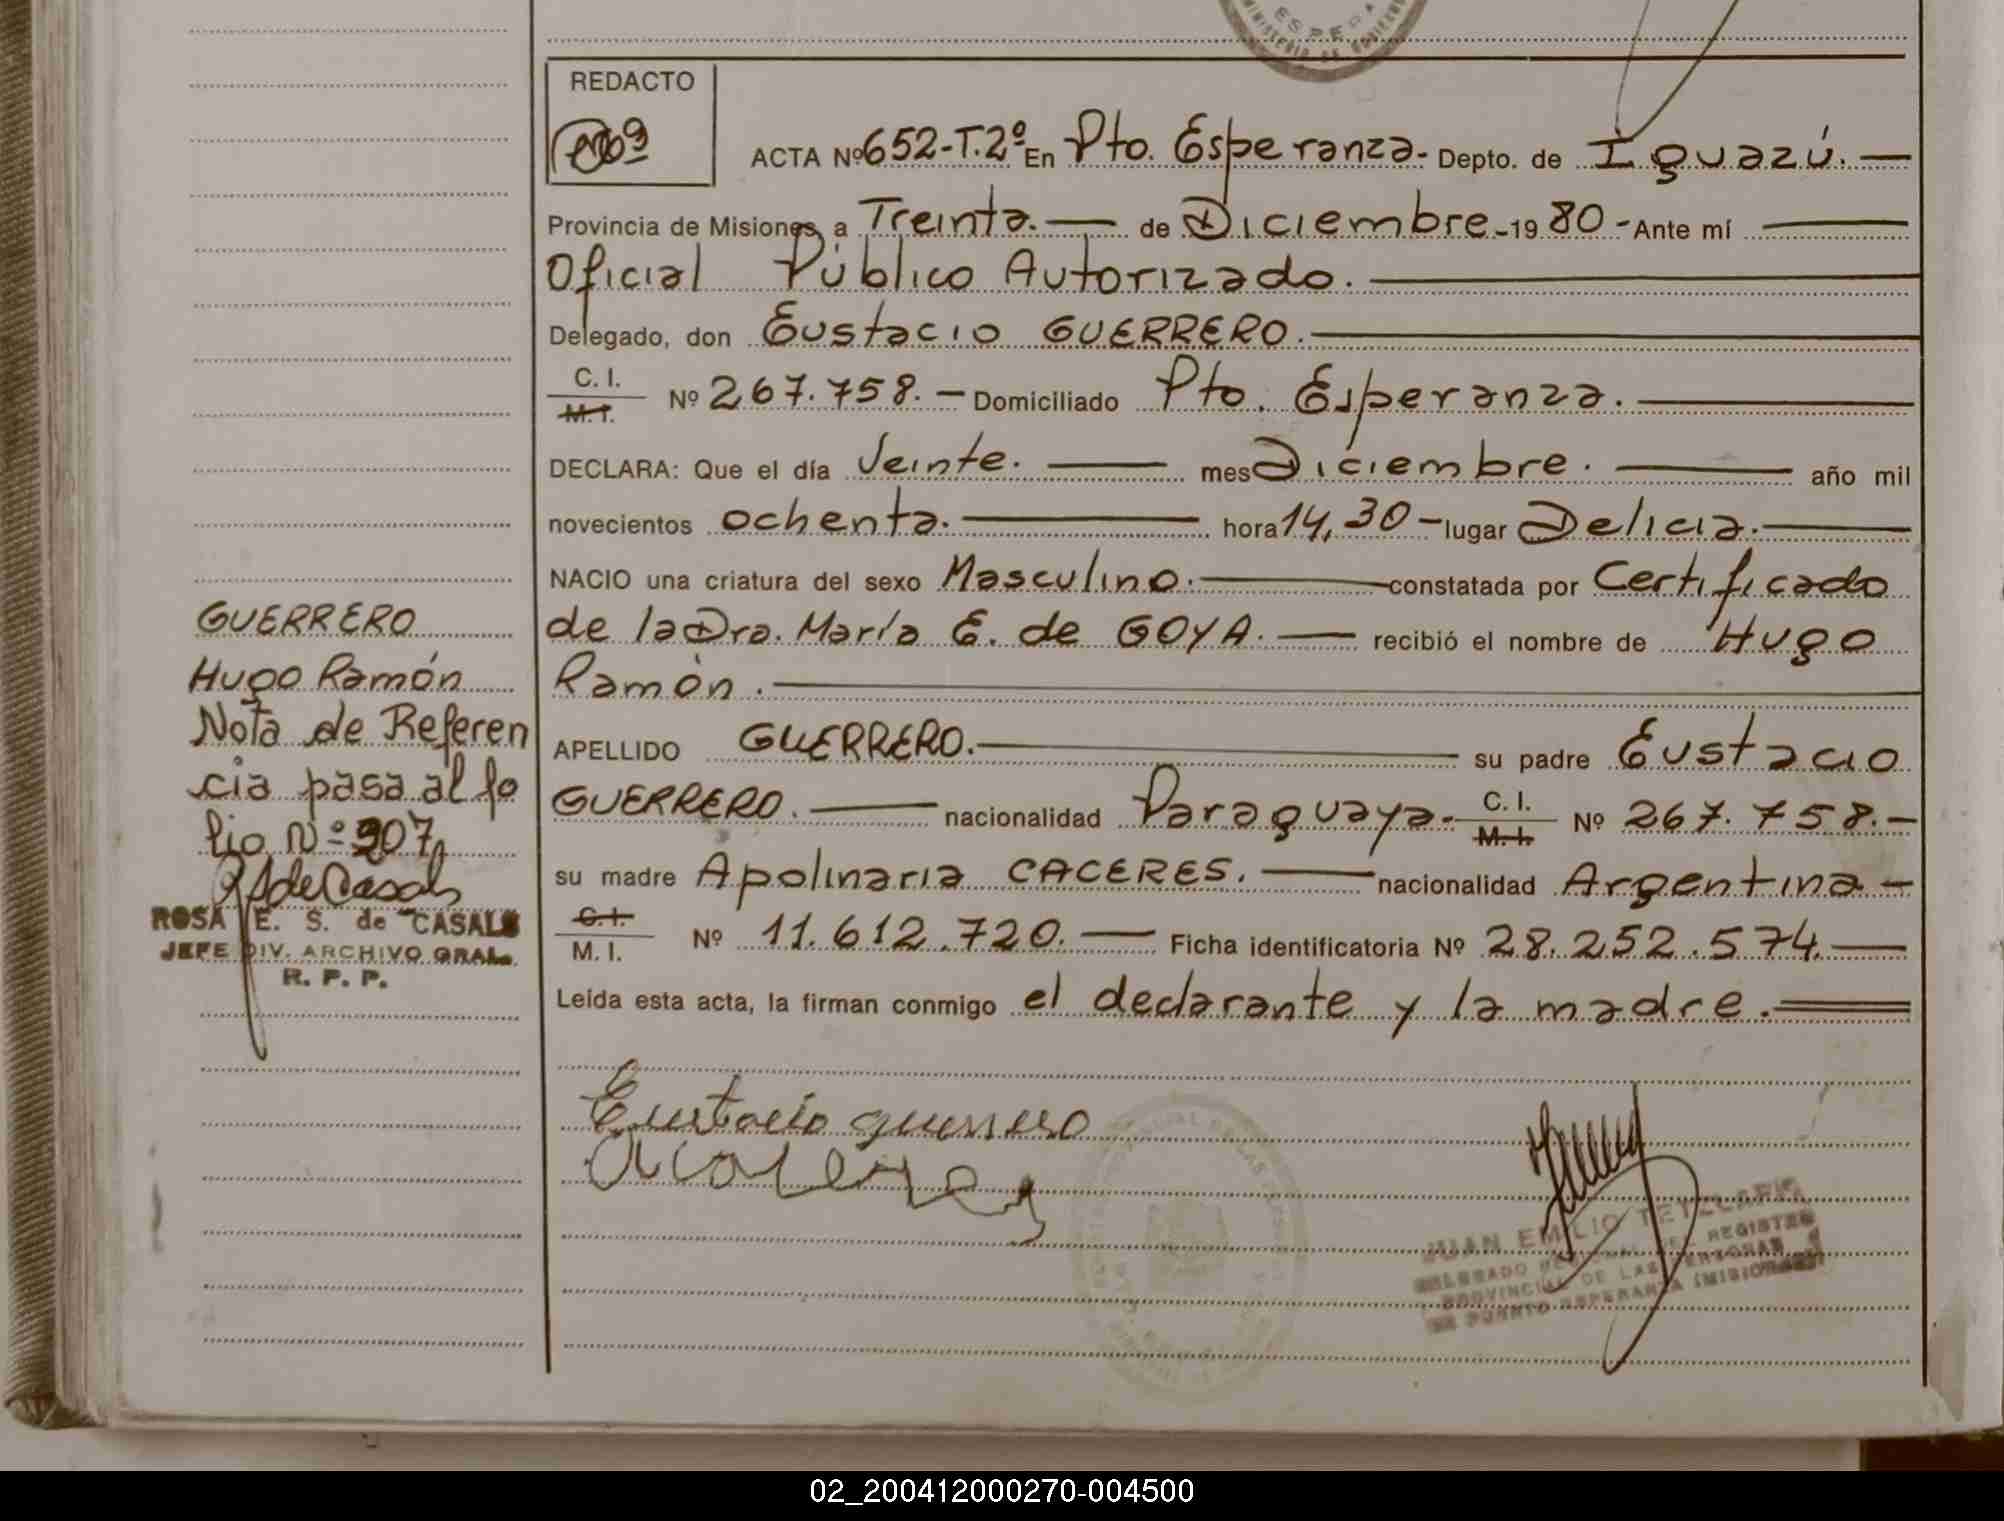 ESPE
MINISTERIO DE GOBIERNO
REDACTO
ACTA Nº 652-T.2º En Pto. Esperanza.- Depto. de Iguazú.—
Provincia de Misiones, a Treinta.— de Diciembre.-19 80-Ante mí —
Oficial Público Autorizado.—
Delegado, don Eustacio GUERRERO.—
C. I.
M. I. Nº 267.758.— Domiciliado Pto. Esperanza.—
DECLARA: Que el día Veinte.— mes Diciembre.— año mil
novecientos ochenta.— hora 14,30-lugar Delicia.—
NACIO una criatura del sexo Masculino.— constatada por Certificado
de la Dra. María E. de GOYA.— recibió el nombre de Hugo
Ramón.—
APELLIDO GUERRERO.— su padre Eustacio
GUERRERO.— nacionalidad Paraguaya.- C. I.
M. I. Nº 267.758.—
su madre Apolinaria CACERES.— nacionalidad Argentina—
C. I.
M. I. Nº 11.612.720.— Ficha identificatoria Nº 28.252.574.—
Leída esta acta, la firman conmigo el declarante y la madre.=
Eustacio guerrero
JUAN EMILIO
DELEGADO DEL REGISTRO
PROVINCIAL DE LAS PERSONAS
PUERTO ESPERANZA (MISIONES)
GUERRERO
Hugo Ramón
Nota de Referen
cia pasa al fo
lio Nº 907
ROSA E. S. de CASALS
JEFE DIV. ARCHIVO GRAL.
R. P. P.
02_200412000270-004500